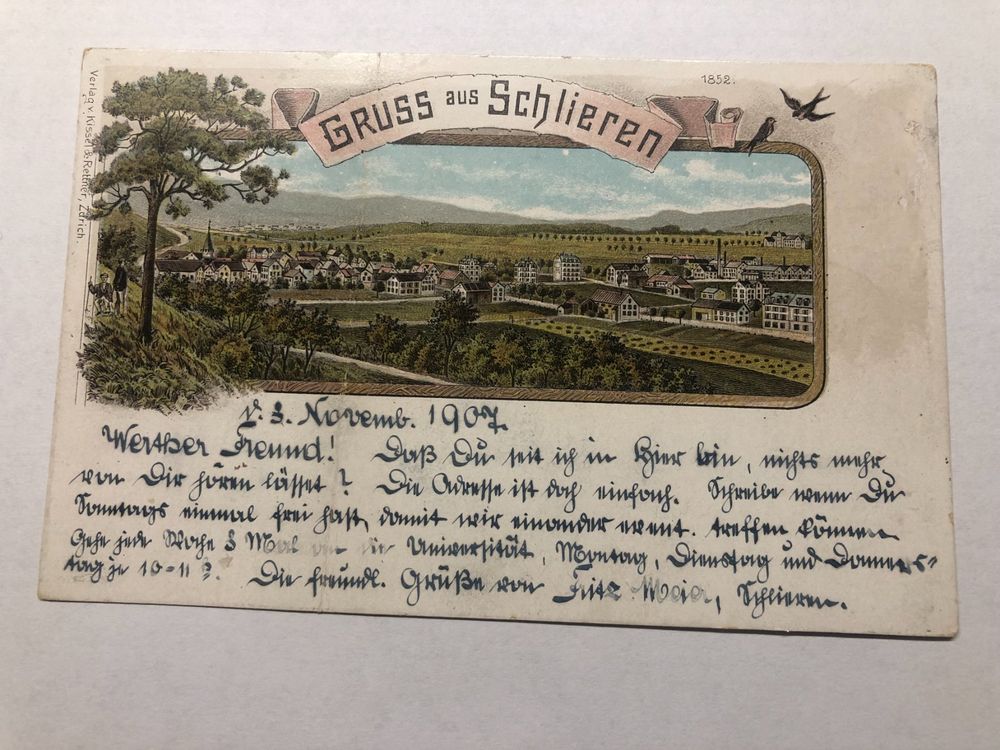 Verlag v. Kissel & Rettner, Zürich.
GRUSS aus Schlieren
1852.
d. 3. Novemb. 1907.
Werther Freund! Daß Du seit ich in Hier bin, nichts mehr
von Dir hören lässet? Die Adresse ist doch einfach. Schreibe wenn Du
Sonntags einmal frei hast, damit wir einander event. treffen können
Gehe jede Woche 3 Mal an die Universität, Montag, Dienstag und Donners-
tag je 10-11
Die freundl. Grüße von Fritz Meier, Schlieren.